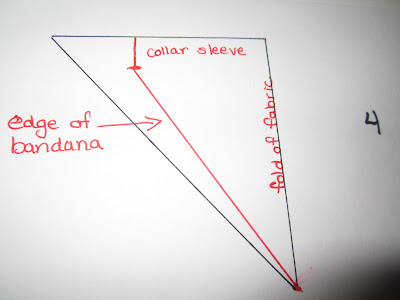 collar sleeve
edge of
bandana
fold of fabric
4